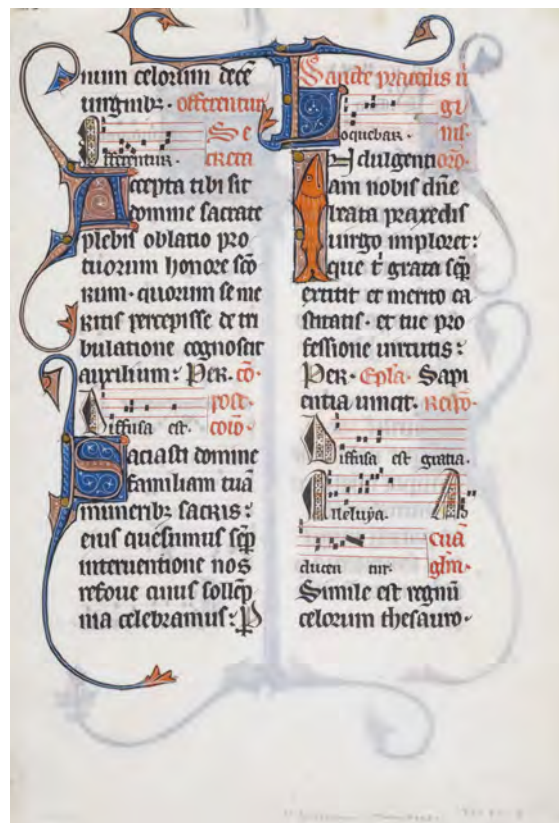 num celorum decē
uirginibꝫ· offerentur
Offerentur· Se
creta
Accepta tibi sit
domine sacrate
plebis oblatio pro
tuorum honore scō
rum· quorum se me
ritis percepisse de tri
bulatione cognoscit
auxilium: Per· cō·
Diffusa est· post
coīo·
Saciasti domine
familiam tuā
muneribꝫ sacris:
eius quesumus sēp
interuentione nos
refoue cuius sollēp
nia celebramus: P
Sancte praxedis ū
gi
Loquebar· nis·
Indulgenti orō·
am nobis dn̄e
beata praxedis
uirgo imploret:
que t' grata sēp
extitit et merito ca
stitatis· et tue pro
fessione uirtutis:
Per· Epl̄a· Sapi
entia uincit· Respō·
Diffusa est gratia·
Alleluya·
A
dducen tur· cuā
gl̄m·
Simile est regnū
celorum thesauro·